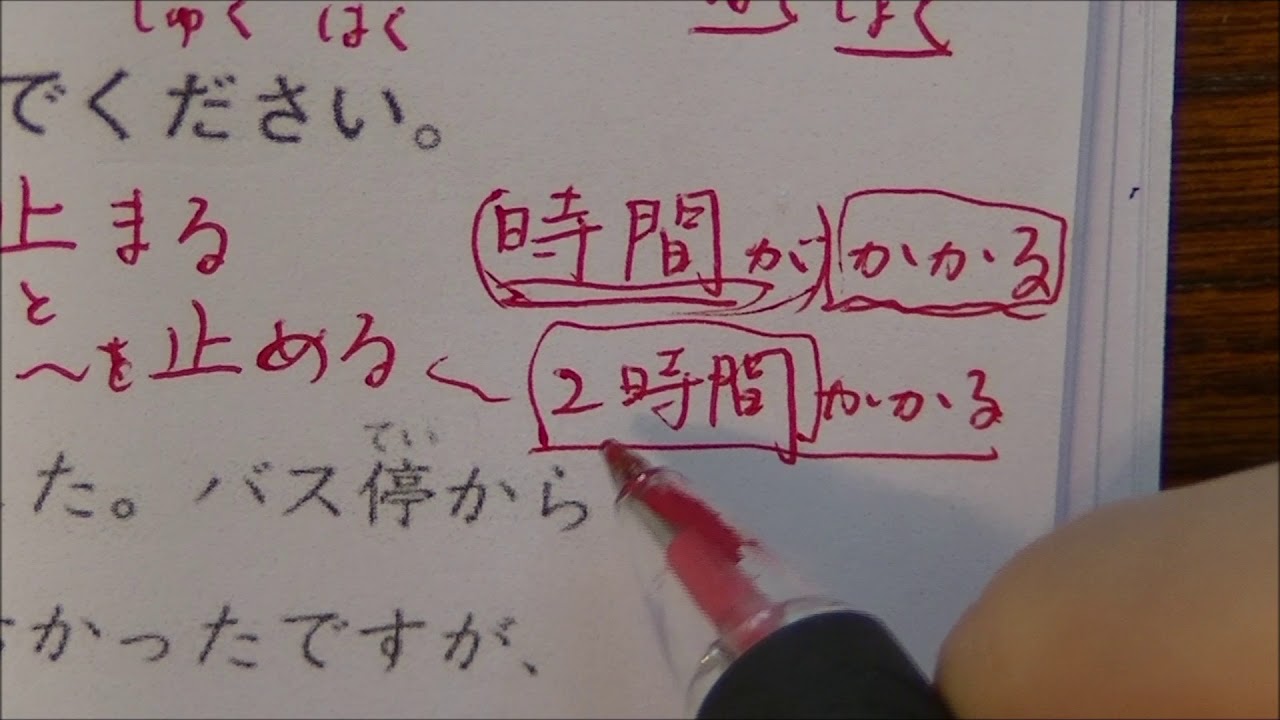 しゅく はく
でください。
止まる
時間が かかる
と
～を止める
2時間 かかる
てい
た。バス停から
かったですが、